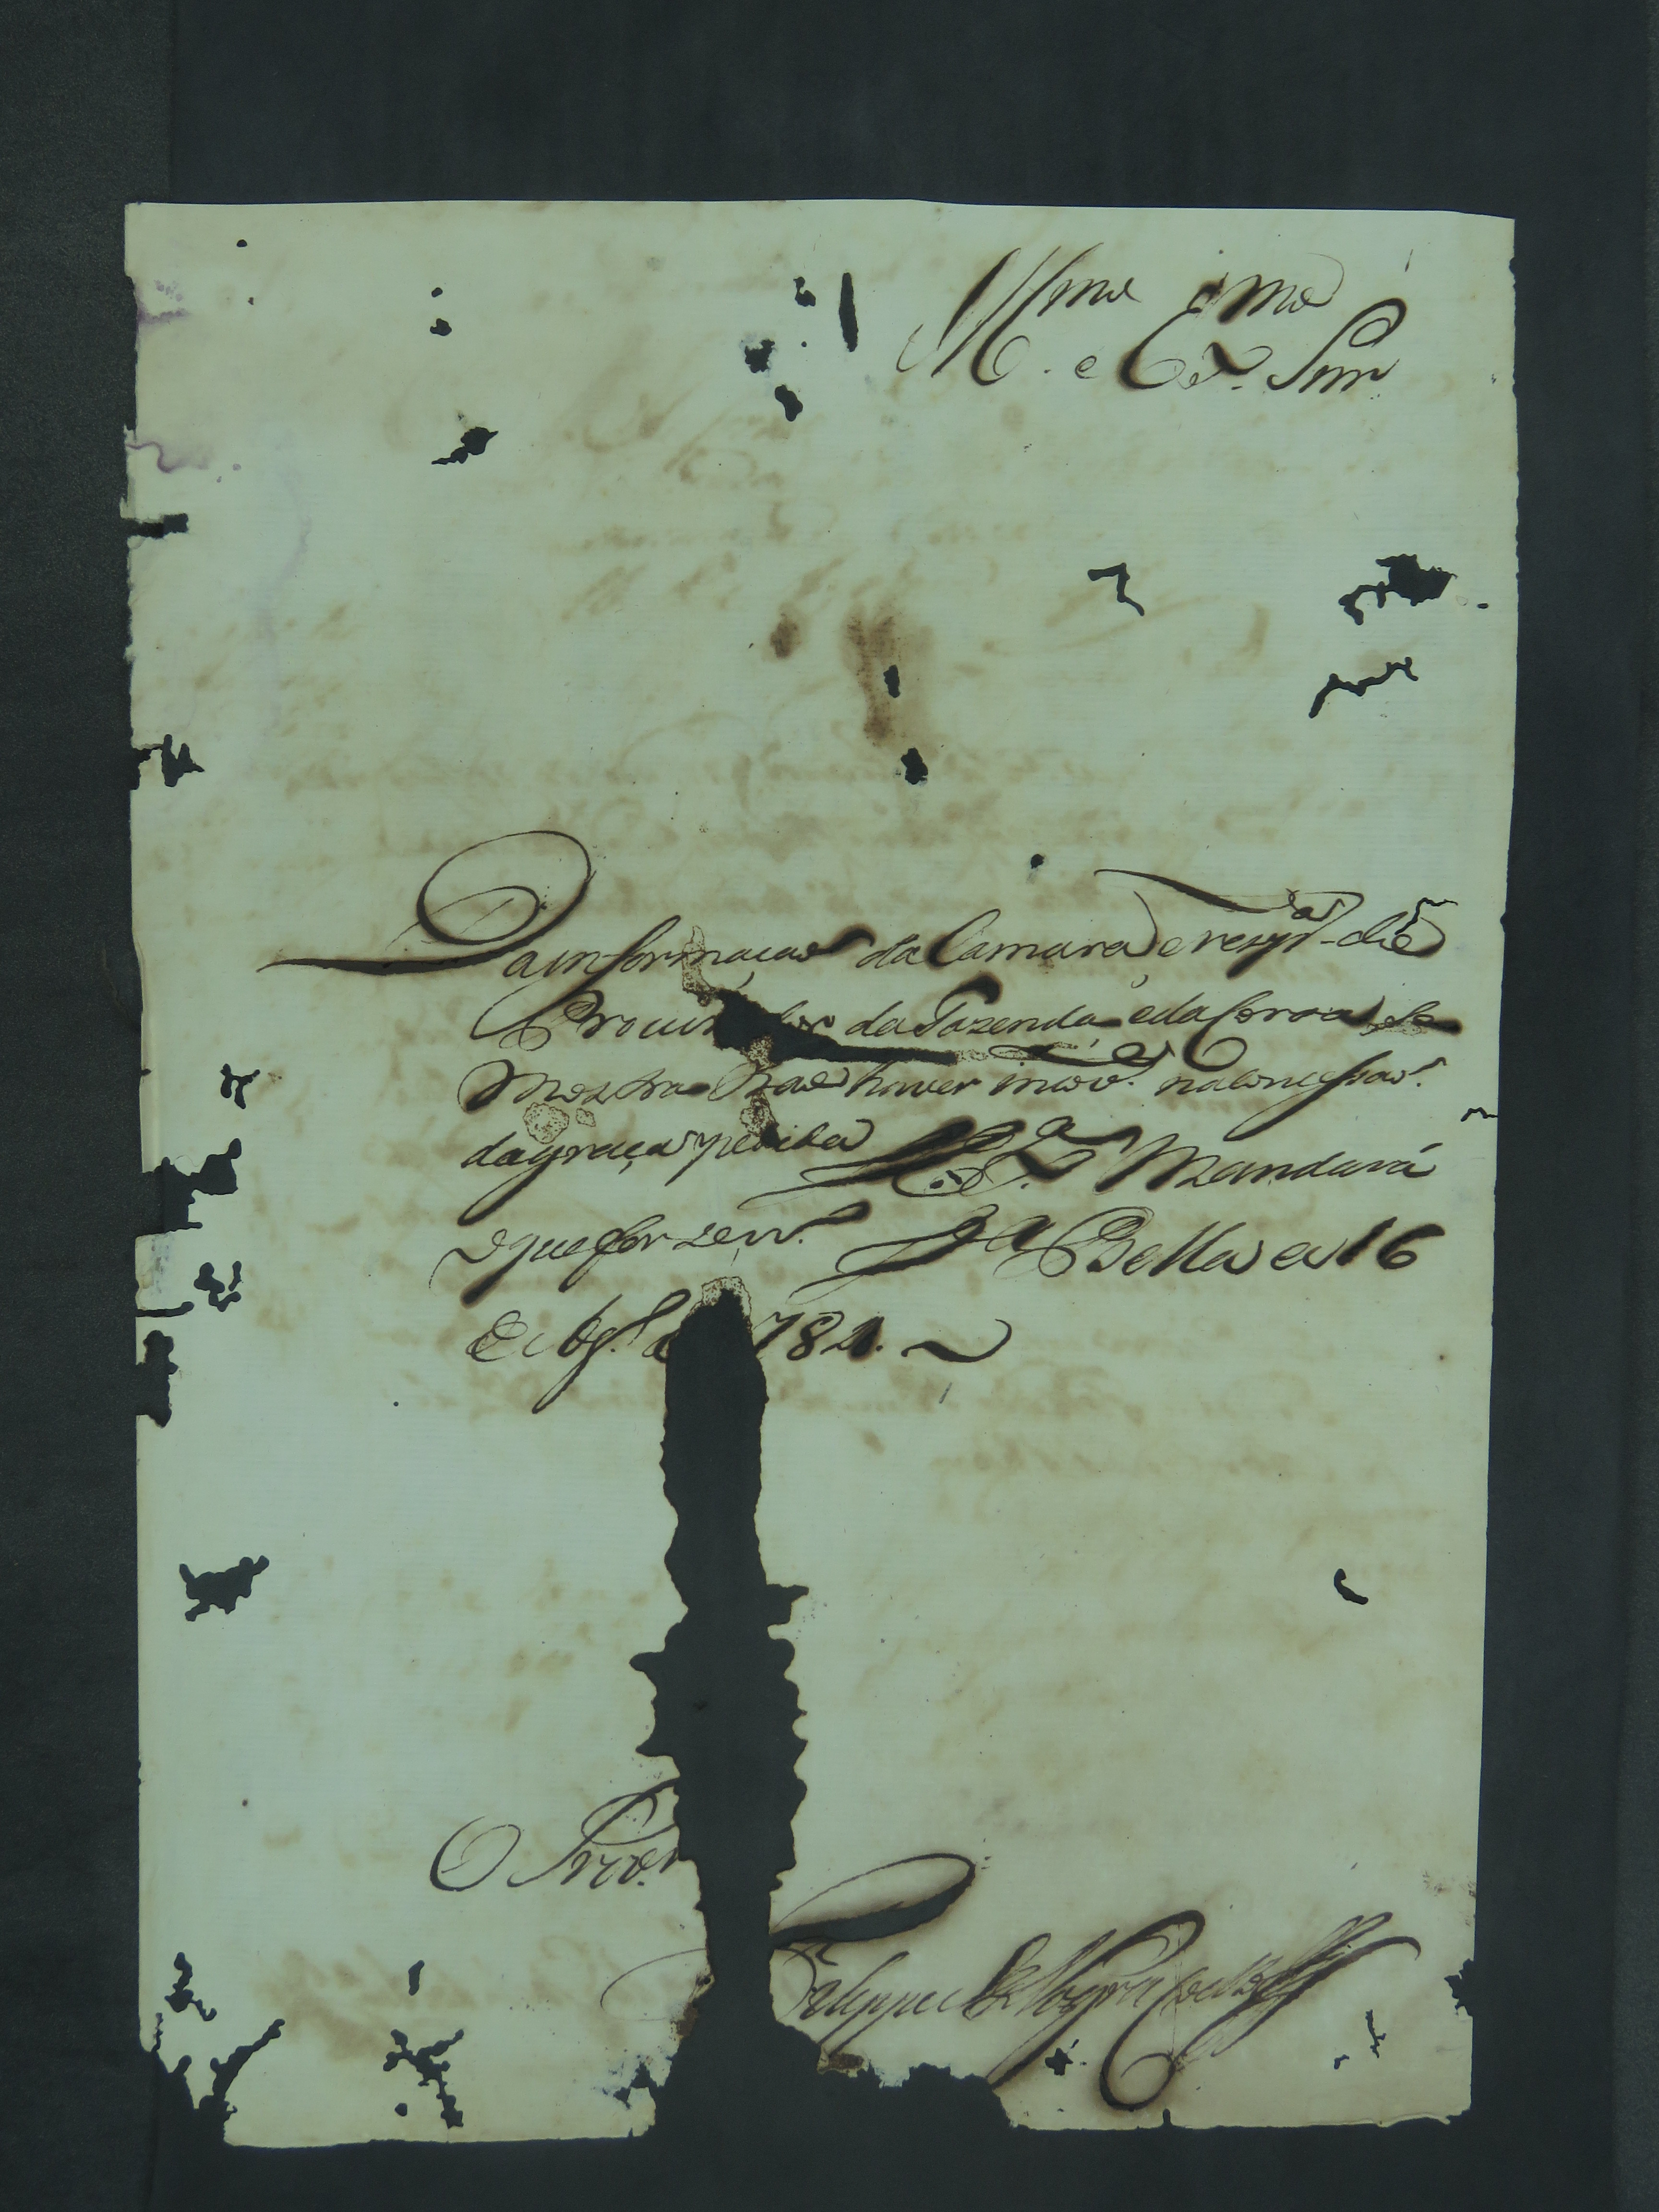 Ill.mo e Ex.mo Snr
Da informaçaõ da Camara, e resp.ta do
Procurador da Fazenda, e da Coroa, se
mostra naõ haver incov.e na concessaõ
da graça pedida V. Ex.a Mandará
o que for serv.o V.a Bella a 16
de 1781.
O Prov.
Felippe Joze Nogr.a Coelho